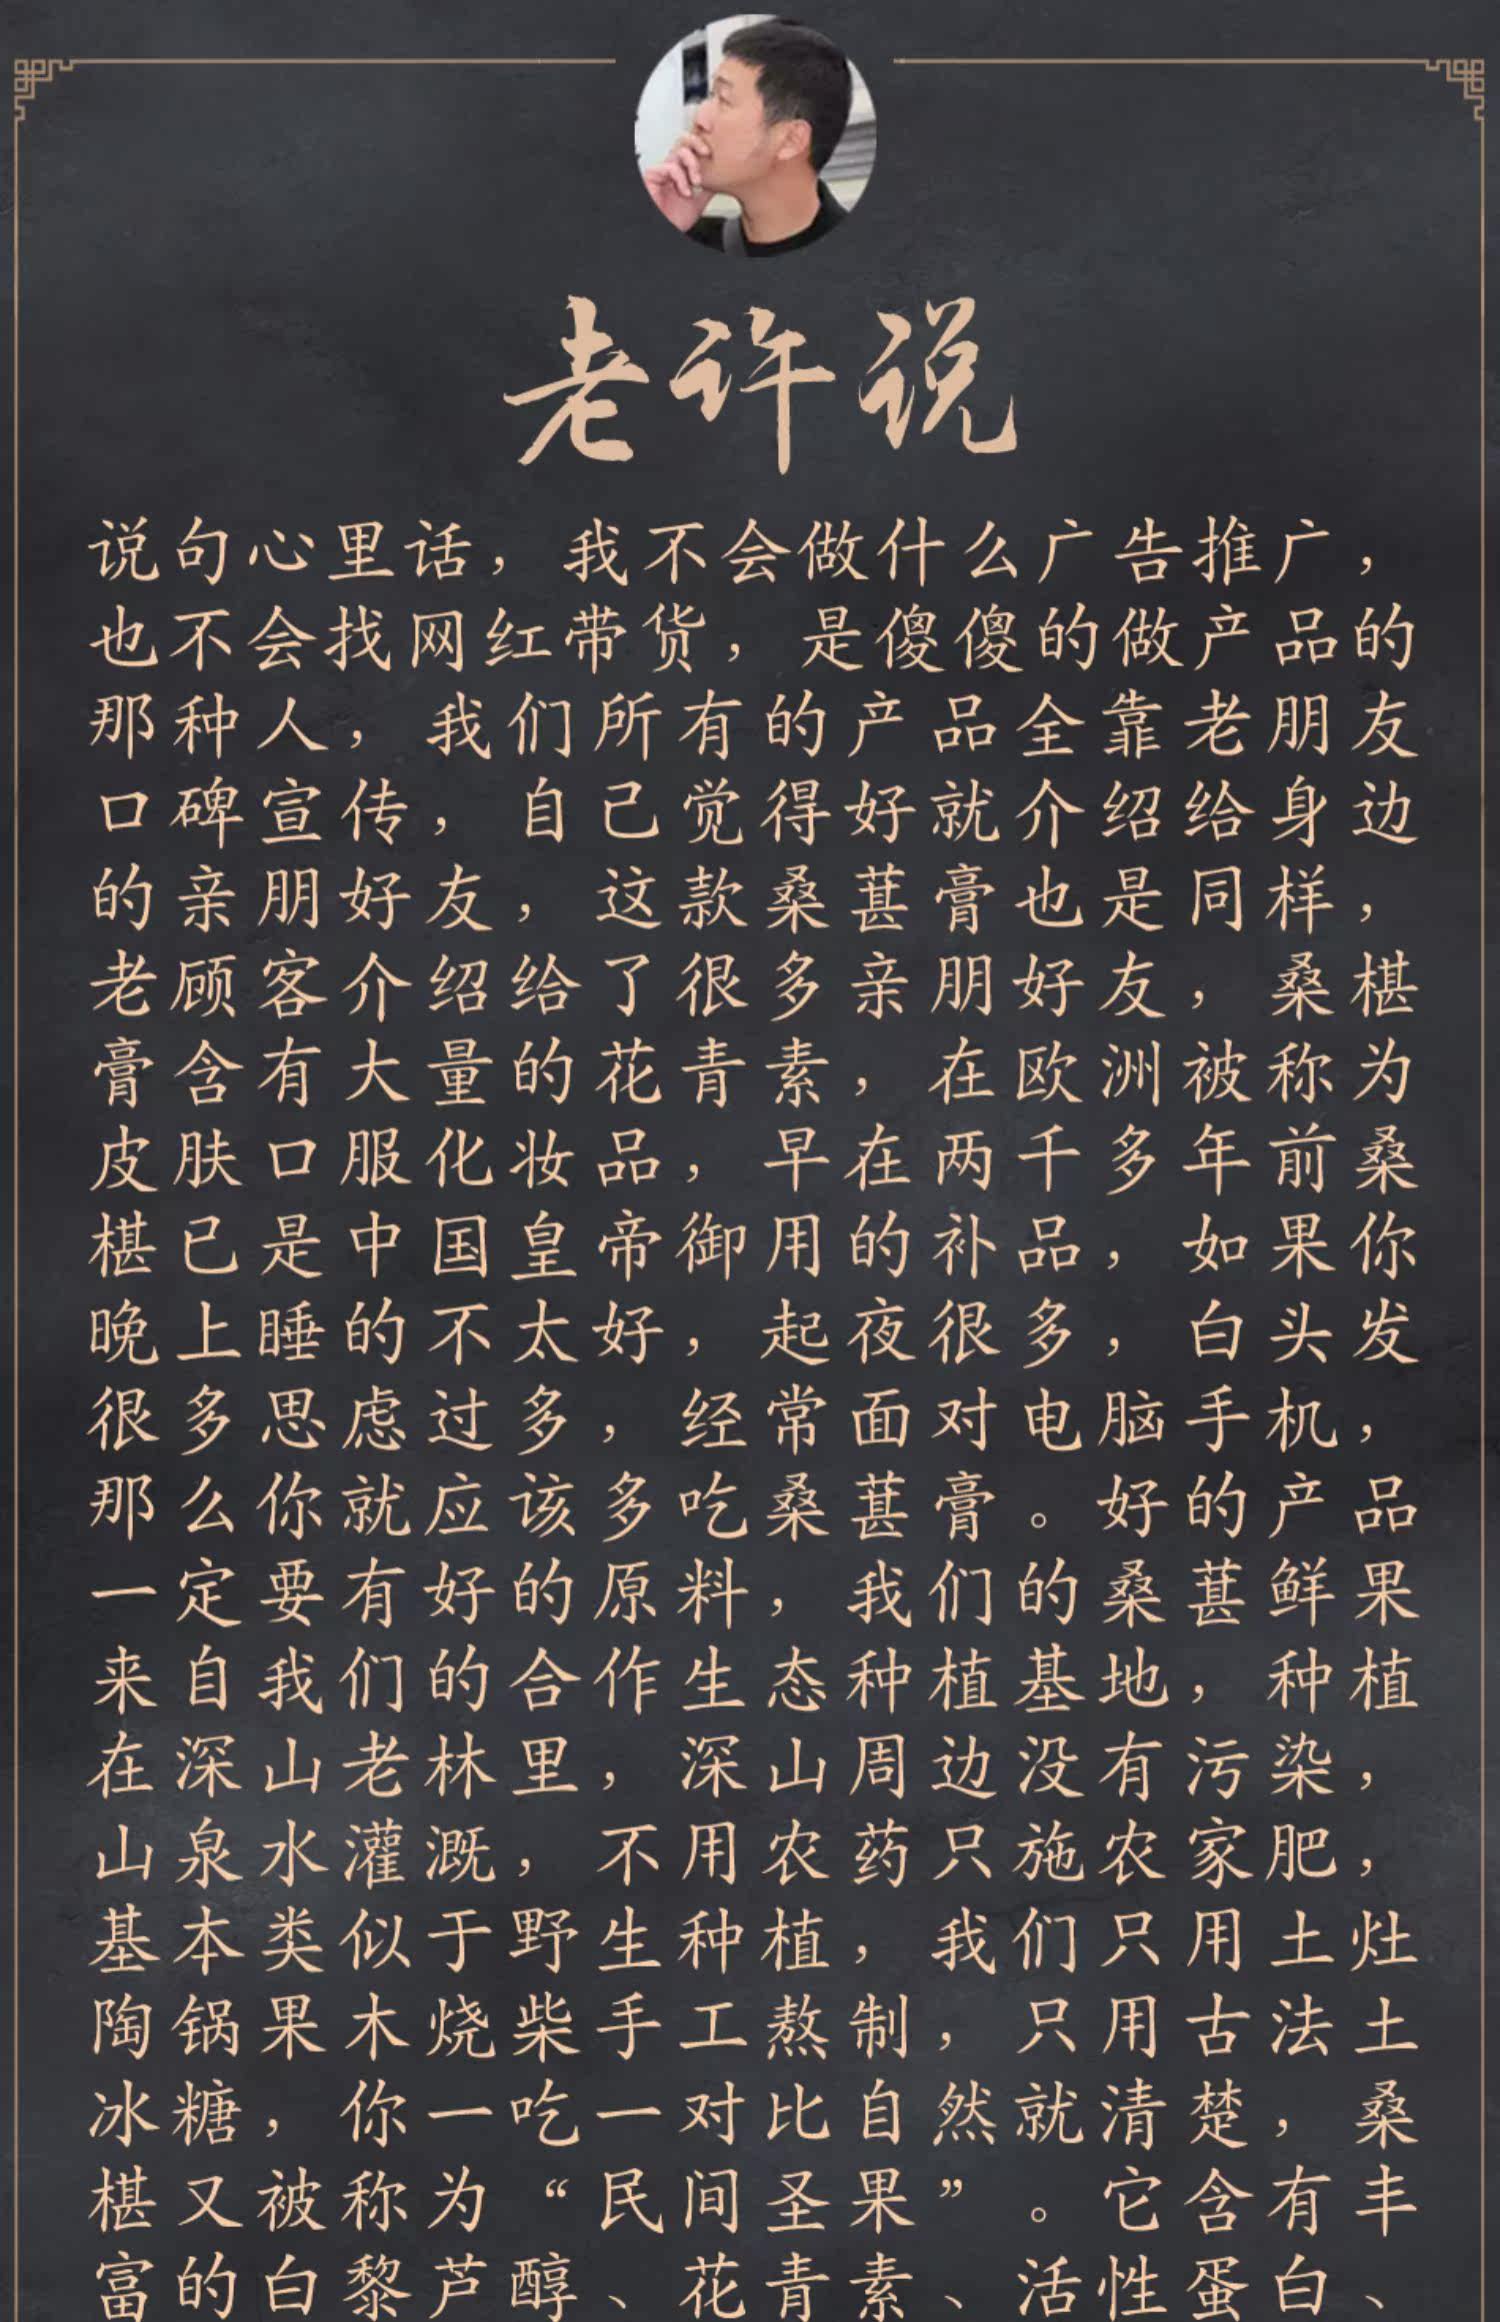 老许说
说句心里话，我不会做什么广告推广，
也不会找网红带货，是傻傻的做产品的
那种人，我们所有的产品全靠老朋友
口碑宣传，自己觉得好就介绍给身边
的亲朋好友，这款桑葚膏也是同样，
老顾客介绍给了很多亲朋好友，桑椹
膏含有大量的花青素，在欧洲被称为
皮肤口服化妆品，早在两千多年前桑
椹已是中国皇帝御用的补品，如果你
晚上睡的不太好，起夜很多，白头发
很多思虑过多，经常面对电脑手机，
那么你就应该多吃桑葚膏。好的产品
一定要有好的原料，我们的桑葚鲜果
来自我们的合作生态种植基地，种植
在深山老林里，深山周边没有污染，
山泉水灌溉，不用农药只施农家肥，
基本类似于野生种植，我们只用土灶
陶锅果木烧柴手工熬制，只用古法土
冰糖，你一吃一对比自然就清楚，桑
椹又被称为“民间圣果”。它含有丰
富的白黎芦醇、花青素、活性蛋白、